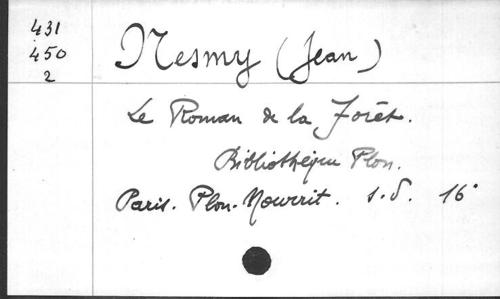 431
450
2
Nesmy (Jean)
Le Roman de la Forêt.
Bibliothèque Plon.
Paris. Plon-Nourrit. s.d. 16°